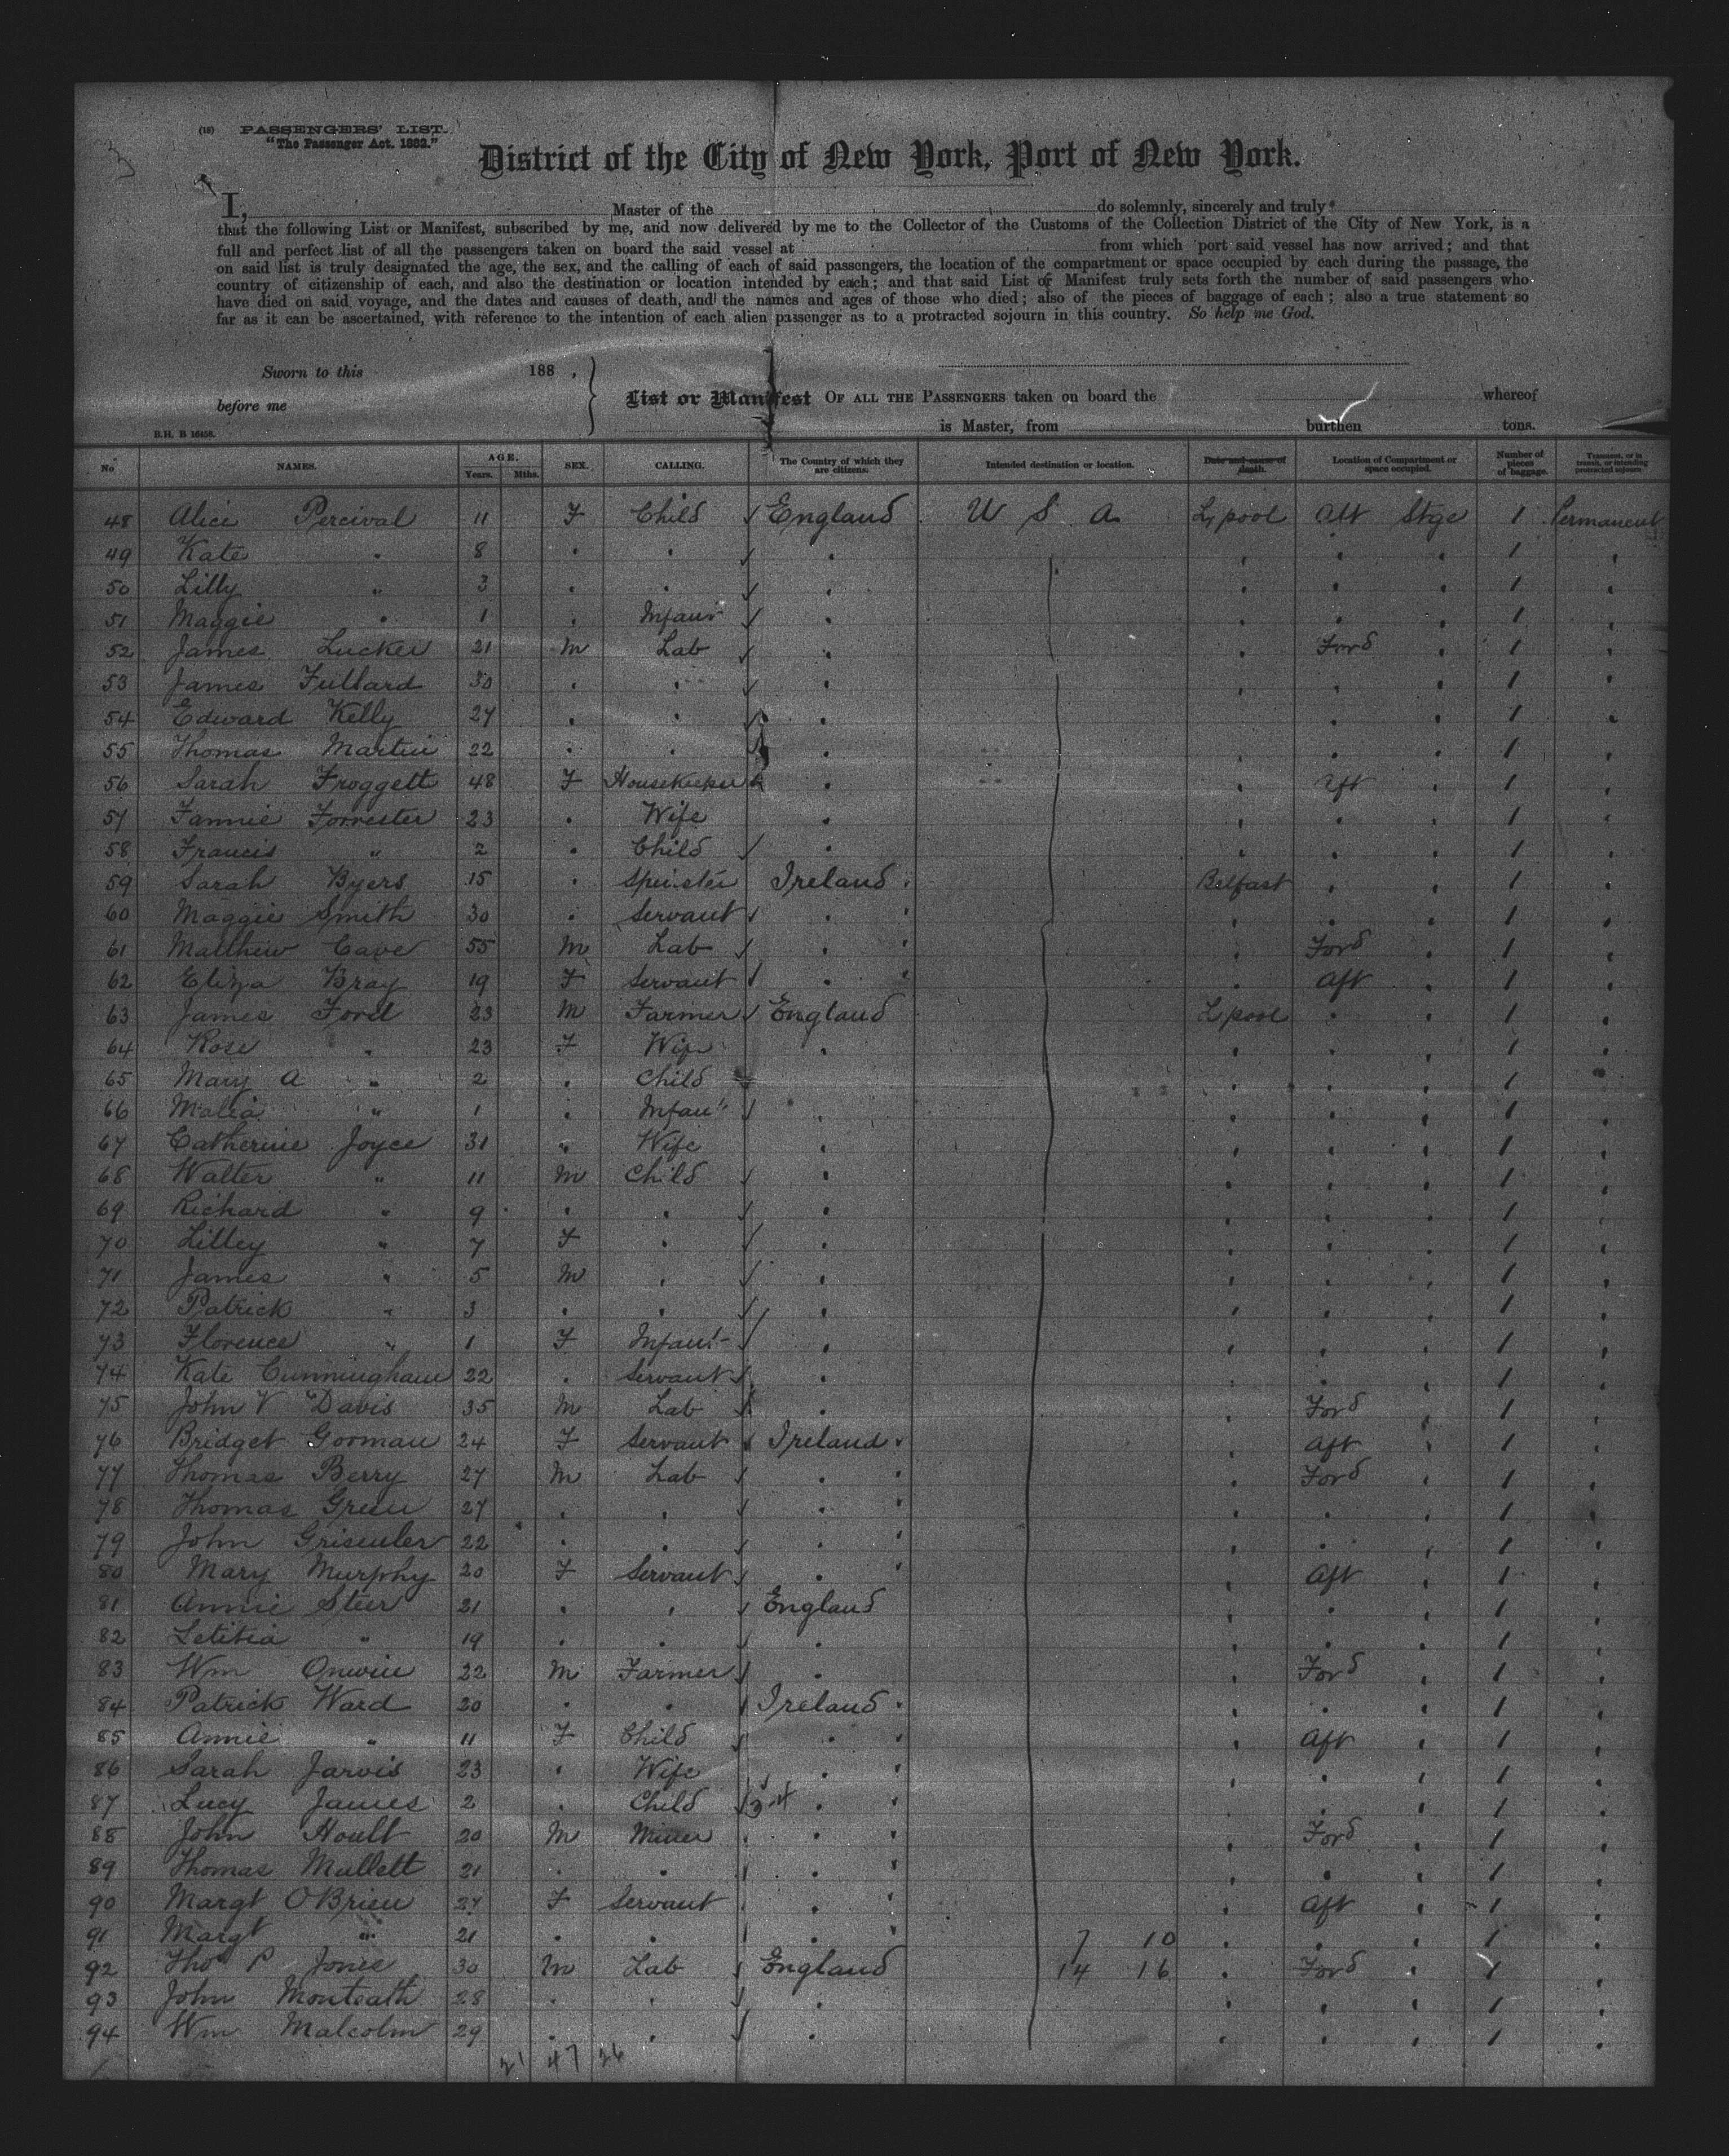 3
(18) PASSENGERS' LIST.
"The Passenger Act. 1882."
District of the City of New York, Port of New York.
I, Master of the do solemnly, sincerely and truly*
that the following List or Manifest, subscribed by me, and now delivered by me to the Collector of the Customs of the Collection District of the City of New York, is a
full and perfect list of all the passengers taken on board the said vessel at from which port said vessel has now arrived; and that
on said list is truly designated the age, the sex, and the calling of each of said passengers, the location of the compartment or space occupied by each during the passage, the
country of citizenship of each, and also the destination or location intended by each; and that said List or Manifest truly sets forth the number of said passengers who
have died on said voyage, and the dates and causes of death, and the names and ages of those who died; also of the pieces of baggage of each; also a true statement so
far as it can be ascertained, with reference to the intention of each alien passenger as to a protracted sojourn in this country. So help me God.
Sworn to this 188 ,
before me
List or Manifest OF ALL THE PASSENGERS taken on board the whereof
is Master, from burthen tons.
B.H. B 16458.
No NAMES. AGE. Years. Mths. SEX. CALLING. The Country of which they are citizens. Intended destination or location. Date and cause of death. Location of Compartment or space occupied. Number of pieces of baggage. Transient, or in transit, or intending protracted sojourn
48 Alice Percival 11 F Child England U S A Lpool Aft Stge 1 Permanent
49 Kate " 8 " " " " " " 1 "
50 Lilly " 3 " " " " " " 1 "
51 Maggie " 1 " Infant " " " " 1 "
52 James Lucker 21 M Lab " " Ford " 1 "
53 James Fullard 30 " " " " " " 1 "
54 Edward Kelly 27 " " " " " " 1 "
55 Thomas Martin 22 " " " " " " 1 "
56 Sarah Froggett 48 F Housekeeper " " Aft " 1 "
57 Fannie Forrester 23 " Wife " " " " 1 "
58 Francis " 2 " Child " " " " 1 "
59 Sarah Byers 15 " Spinster Ireland Belfast " " 1 "
60 Maggie Smith 30 " Servant " " " " 1 "
61 Matthew Cave 55 M Lab " " Ford " 1 "
62 Eliza Bray 19 F Servant " " Aft " 1 "
63 James Ford 23 M Farmer England Lpool " " 1 "
64 Rose " 23 F Wife " " " " 1 "
65 Mary A " 2 " Child " " " 1 "
66 Malia " 1 " Infant " " " " 1 "
67 Catherine Joyce 31 " Wife " " " " 1 "
68 Walter " 11 M Child " " " " 1 "
69 Richard " 9 " " " " " " 1 "
70 Lilley " 7 F " " " " " 1 "
71 James " 5 M " " " " " 1 "
72 Patrick " 3 " " " " " " 1 "
73 Florence " 1 F Infant " " " " 1 "
74 Kate Cunningham 22 " Servant " " " " 1 "
75 John V Davis 35 M Lab " " Ford " 1 "
76 Bridget Gorman 24 F Servant Ireland " Aft " 1 "
77 Thomas Berry 27 M Lab " " Ford " 1 "
78 Thomas Green 27 " " " " " " 1 "
79 John 22 " " " " " " 1 "
80 Mary Murphy 20 F Servant " " Aft " 1 "
81 Annie Steer 21 " " England " " " 1 "
82 Letitia " 19 " " " " " " 1 "
83 Wm Onwin 22 M Farmer " " Ford " 1 "
84 Patrick Ward 20 " " Ireland " " " 1 "
85 Annie " 11 F Child " " Aft " 1 "
86 Sarah Jarvis 23 " Wife " " " " 1 "
87 Lucy James 2 " Child " " " " 1 "
88 John Hoult 20 M Miner " " Ford " 1 "
89 Thomas Mullett 21 " " " " " " 1 "
90 Margt OBrien 27 F Servant " " Aft " 1 "
91 Margt " 21 " " " 7 10 " " " 1 "
92 Tho P Jones 30 M Lab England 14 16 " Ford " 1 "
93 John Monteath 28 " " " " " " 1 "
94 Wm Malcolm 29 " " " " " " 1 "
21 47 26